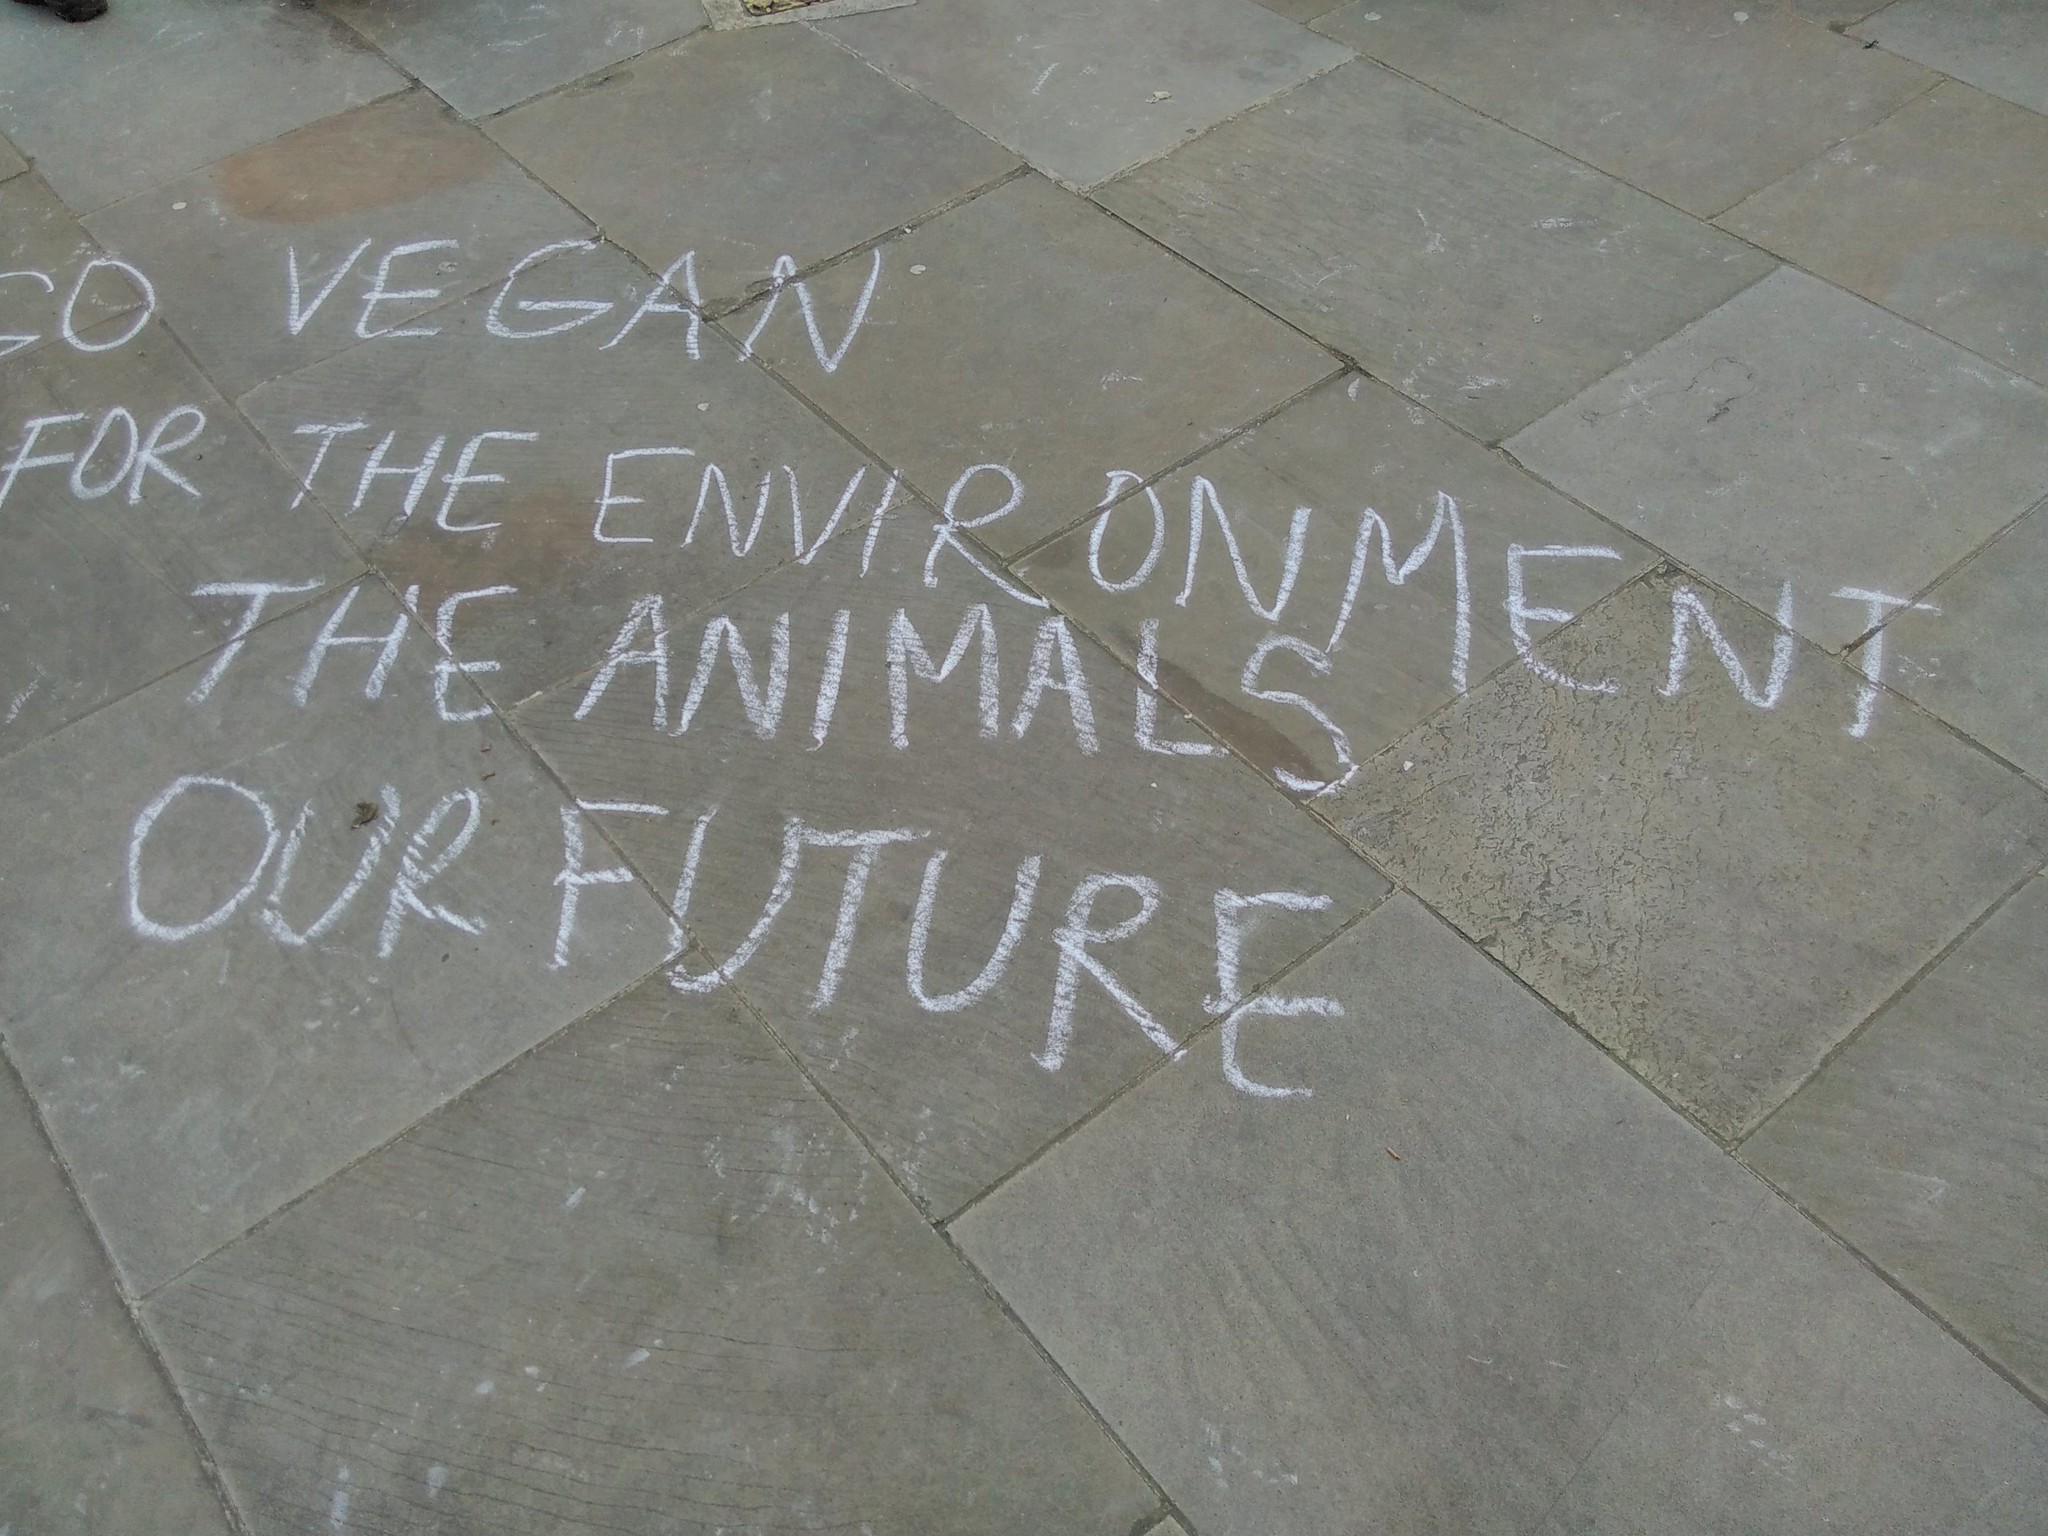 GO VEGAN
FOR THE ENVIRONMENT
THE ANIMALS
OUR FUTURE